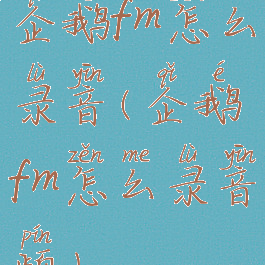 企鹅fm怎么
lù yīn
录音(企鹅
qǐ é
fm怎么录音
zěn me lù yīn
pín
频)